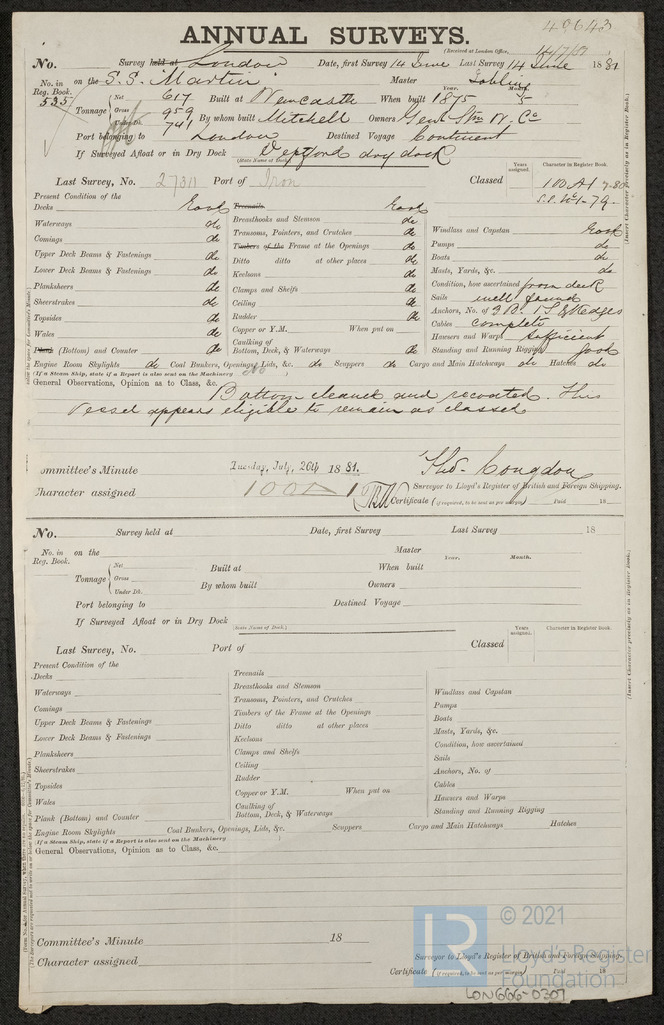 49643
ANNUAL SURVEYS.
(Received at London Office, 14/7/81
No. Survey held at London Date, first Survey 14 June Last Survey 14 June 1881
No. in Reg. Book. on the S.S. Martin Master
535 Year. Month.
Tonnage Net 617 Built at Newcastle When built 1875 5
Gross 959 By whom built Mitchell Owners Genl Stm N. Co
Under Dk. 741
Port belonging to London Destined Voyage Continent
If Surveyed Afloat or in Dry Dock Deptford dry dock
(State Name of Dock.)
Last Survey, No. 27311 Port of Iron Classed
Years assigned. Character in Register Book.
100 A1 7.80
S.S. No 1-79
(Insert Character precisely as in Register Book.)
Present Condition of the
Decks Good
Waterways do
Comings do
Upper Deck Beams & Fastenings do
Lower Deck Beams & Fastenings do
Planksheers do
Sheerstrakes do
Topsides do
Wales do
Plank (Bottom) and Counter do
Treenails Good
Breasthooks and Stemson do
Transoms, Pointers, and Crutches do
Timbers of the Frame at the Openings do
Ditto ditto at other places do
Keelsons do
Clamps and Shelfs do
Ceiling do
Rudder do
Copper or Y.M. When put on
Caulking of
Bottom, Deck, & Waterways do
Windlass and Capstan Good
Pumps do
Boats do
Masts, Yards, &c. do
Condition, how ascertained from deck
Sails well found
Anchors, No. of 3 B. 1 S. & Kedges
Cables complete
Hawsers and Warps sufficient
Standing and Running Rigging good
Engine Room Skylights do Coal Bunkers, Openings, Lids, &c. do Scuppers do Cargo and Main Hatchways do Hatches do
If a Steam Ship, state if a Report is also sent on the Machinery
General Observations, Opinion as to Class, &c.
Bottom cleaned and recoated. This
Vessel appears eligible to remain as classed
Committee's Minute Tuesday, July, 26th 1881.
Character assigned 100 A 1
Thos. Congdon
Surveyor to Lloyd's Register of British and Foreign Shipping.
Certificate (if required, to be sent as per margin) Paid 18
No. Survey held at Date, first Survey Last Survey 18
No. in Reg. Book. on the Master
Year. Month.
Tonnage Net Built at When built
Gross By whom built Owners
Under Dk.
Port belonging to Destined Voyage
If Surveyed Afloat or in Dry Dock
(State Name of Dock.)
Last Survey, No. Port of Classed
Years assigned. Character in Register Book.
(Insert Character precisely as in Register Book.)
Present Condition of the
Decks
Waterways
Comings
Upper Deck Beams & Fastenings
Lower Deck Beams & Fastenings
Planksheers
Sheerstrakes
Topsides
Wales
Plank (Bottom) and Counter
Treenails
Breasthooks and Stemson
Transoms, Pointers, and Crutches
Timbers of the Frame at the Openings
Ditto ditto at other places
Keelsons
Clamps and Shelfs
Ceiling
Rudder
Copper or Y.M. When put on
Caulking of
Bottom, Deck, & Waterways
Windlass and Capstan
Pumps
Boats
Masts, Yards, &c.
Condition, how ascertained
Sails
Anchors, No. of
Cables
Hawsers and Warps
Standing and Running Rigging
Engine Room Skylights Coal Bunkers, Openings, Lids, &c. Scuppers Cargo and Main Hatchways Hatches
If a Steam Ship, state if a Report is also sent on the Machinery
General Observations, Opinion as to Class, &c.
Committee's Minute 18
Character assigned
Surveyor to Lloyd's Register of British and Foreign Shipping.
Certificate (if required, to be sent as per margin) Paid 18
LR © 2021
Lloyd's Register
Foundation
LON666-0307